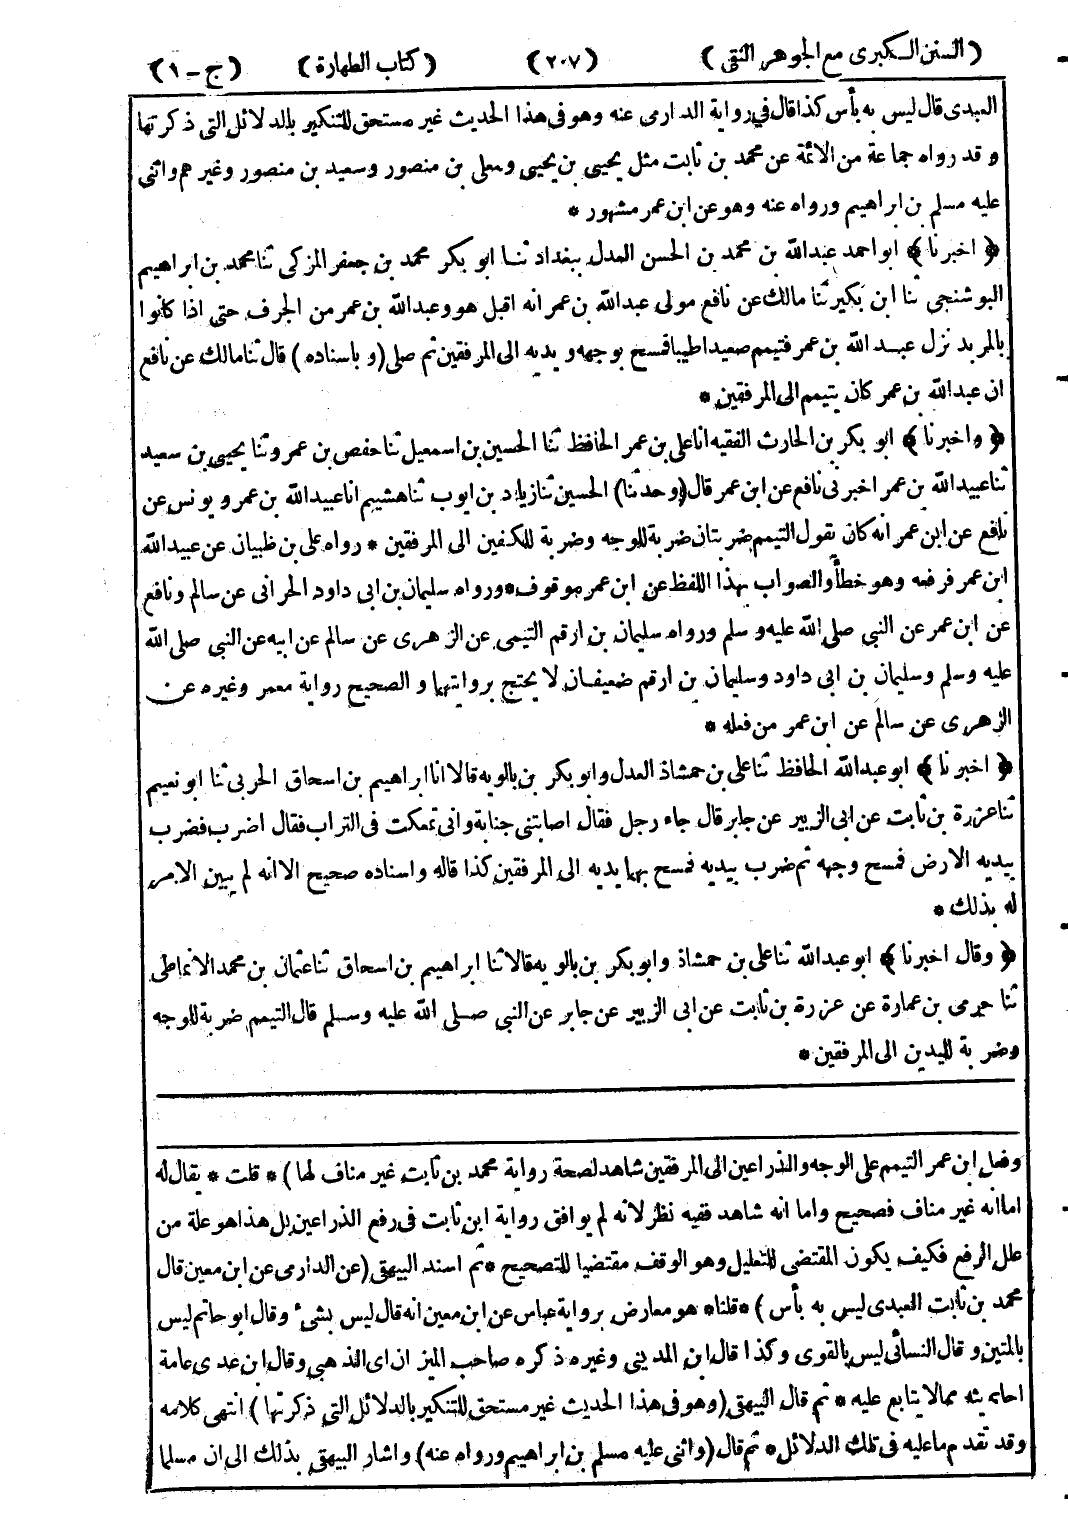 ( السنن الكبرى مع الجوهر النقى ) ( ٢٠٧ ) ( كتاب الطهارة ) ( ج - ١ )
العبدى قال ليس به بأس كذا قال في رواية الدارمى عنه وهو فى هذا الحديث غير مستحق للتنكير بالدلائل التى ذكرتها
وقد رواه جماعة من الائمة عن محمد بن ثابت مثل يحيى بن يحيى ومعلى بن منصور وسعيد بن منصور وغيرهم واثنى
عليه مسلم بن ابراهيم ورواه عنه وهو عن ابن عمر مشهور *
﴿ اخبرنا ﴾ ابو احمد عبدالله بن محمد بن الحسن العدل ببغداد ثنا ابو بكر محمد بن جعفر المزكى ثنا محمد بن ابراهيم
البوشنجى ثنا ابن بكير ثنا مالك عن نافع مولى عبدالله بن عمر انه اقبل هو وعبدالله بن عمر من الجرف حتى اذا كانوا
بالمربد نزل عبدالله بن عمر فتيمم صعيدا طيبا فمسح بوجهه ويديه الى المرفقين ثم صلى (وباسناده) قال ثنا مالك عن نافع
ان عبدالله بن عمر كان يتيمم الى المرفقين *
﴿ واخبرنا ﴾ ابو بكر بن الحارث الفقيه انا على بن عمر الحافظ ثنا الحسين بن اسمعيل ثنا حفص بن عمرو ثنا يحيى بن سعيد
ثنا عبيدالله بن عمر اخبرنى نافع عن ابن عمر قال (وحدثنا) الحسين ثنا زياد بن ايوب ثنا هشيم انا عبيدالله بن عمر ويونس عن
نافع عن ابن عمر انه كان يقول التيمم ضربتان ضربة للوجه وضربة للكفين الى المرفقين * رواه على بن ظبيان عن عبيدالله
ابن عمر فرفعه وهو خطأ والصواب بهذا اللفظ عن ابن عمر موقوف * ورواه سليمان بن ابى داود الحرانى عن سالم ونافع
عن ابن عمر عن النبي صلى الله عليه وسلم ورواه سليمان بن ارقم التيمى عن الزهرى عن سالم عن ابيه عن النبي صلى الله
عليه وسلم وسليمان بن ابى داود وسليمان بن ارقم ضعيفان لا يحتج بروايتهما والصحيح رواية معمر وغيره عن
الزهرى عن سالم عن ابن عمر من فعله *
﴿ اخبرنا ﴾ ابو عبدالله الحافظ ثنا على بن حمشاذ العدل وابو بكر بن بالويه قالا انا ابراهيم بن اسحاق الحربى ثنا ابو نعيم
ثنا عزرة بن ثابت عن ابى الزبير عن جابر قال جاء رجل فقال اصابتنى جنابة وانى تمعكت فى التراب فقال اضرب فضرب
بيديه الارض فمسح وجهه ثم ضرب بيديه فمسح بهما يديه الى المرفقين كذا قاله واسناده صحيح الا انه لم يبين الامر
له بذلك *
﴿ وقال اخبرنا ﴾ ابو عبدالله ثنا على بن حمشاذ وابو بكر بن بالويه قالا ثنا ابراهيم بن اسحاق ثنا عثمان بن محمد الانماطى
ثنا حرمى بن عمارة عن عزرة بن ثابت عن ابى الزبير عن جابر عن النبي صلى الله عليه وسلم قال التيمم ضربة للوجه
وضربة لليدين الى المرفقين *
وفعل ابن عمر التيمم على الوجه والذراعين الى المرفقين شاهد لصحة رواية محمد بن ثابت غير مناف لها) * قلت * يقال له
اما انه غير مناف فصحيح واما انه شاهد ففيه نظر لانه لم يوافق رواية ابن ثابت فى رفع الذراعين بل هذا هو علة من
علل الرفع فكيف يكون المقتضى للتعليل وهو الوقف مقتضيا للتصحيح * ثم اسند البيهقى (عن الدارمى عن ابن معين قال
محمد بن ثابت العبدى ليس به بأس) * قلنا * هو معارض برواية عباس عن ابن معين انه قال ليس بشىء وقال ابو حاتم ليس
بالمتين وقال النسائى ليس بالقوى وكذا قال ابن المدينى وغيره ذكره صاحب الميزان اى الذهبى وقال ابن عدى عامة
احاديثه مما لا يتابع عليه * ثم قال البيهقى (وهو فى هذا الحديث غير مستحق للتنكير بالدلائل التى ذكرتها) انتهى كلامه
وقد تقدم ما عليه فى تلك الدلائل * ثم قال (واثنى عليه مسلم بن ابراهيم ورواه عنه) واشار البيهقى بذلك الى ان مسلما